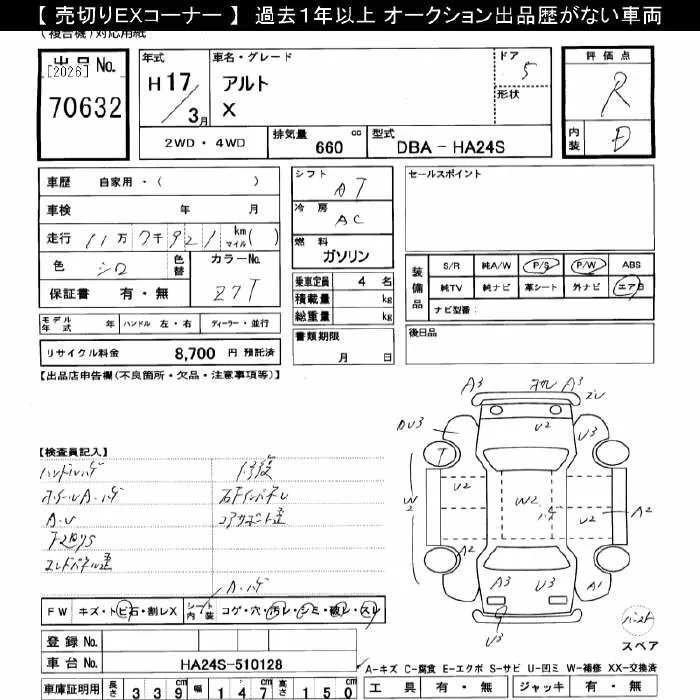 【 売切りEXコーナー 】 過去１年以上 オークション出品歴がない車両
(複合機)対応用紙
出品No.
[2026]
70632
年式
H17/3月
車名・グレード
アルト
X
ドア
5
形状
評価点
R
内装
D
2WD・4WD
排気量 cc
660
型式
DBA - HA24S
車歴 自家用・( )
車検 年 月
走行 11万7千921 km マイル( )
色 シロ
色替
カラーNo.
Z7T
保証書 有・無
シフト
AT
冷房
AC
燃料
ガソリン
乗車定員 4 名
積載量 kg
総重量 kg
セールスポイント
装備品
S/R 純A/W P/S P/W ABS
純TV 純ナビ 革シート 外ナビ エアB
ナビ型番:
モデル年式 年 ハンドル 左・右 ディーラー・並行
書類期限
月 日
後日品
リサイクル料金 8,700 円 預託済
【出品店申告欄(不良箇所・欠品・注意事項等)】
【検査員記入】
A3 A3
U2 U3
T
U2 W2 U2 A2
W2
A2
A3 U3 A1
U3
FW キズ・トビ石・割レX シート内装 コゲ・穴・汚レ・シミ・破レ・スレ
登録No.
車台No. HA24S-510128
スペア
A-キズ C-腐食 E-エクボ S-サビ U-凹ミ W-補修 XX-交換済
車庫証明用 長さ 339 幅 147 高さ 150
工具 有・無 ジャッキ 有・無